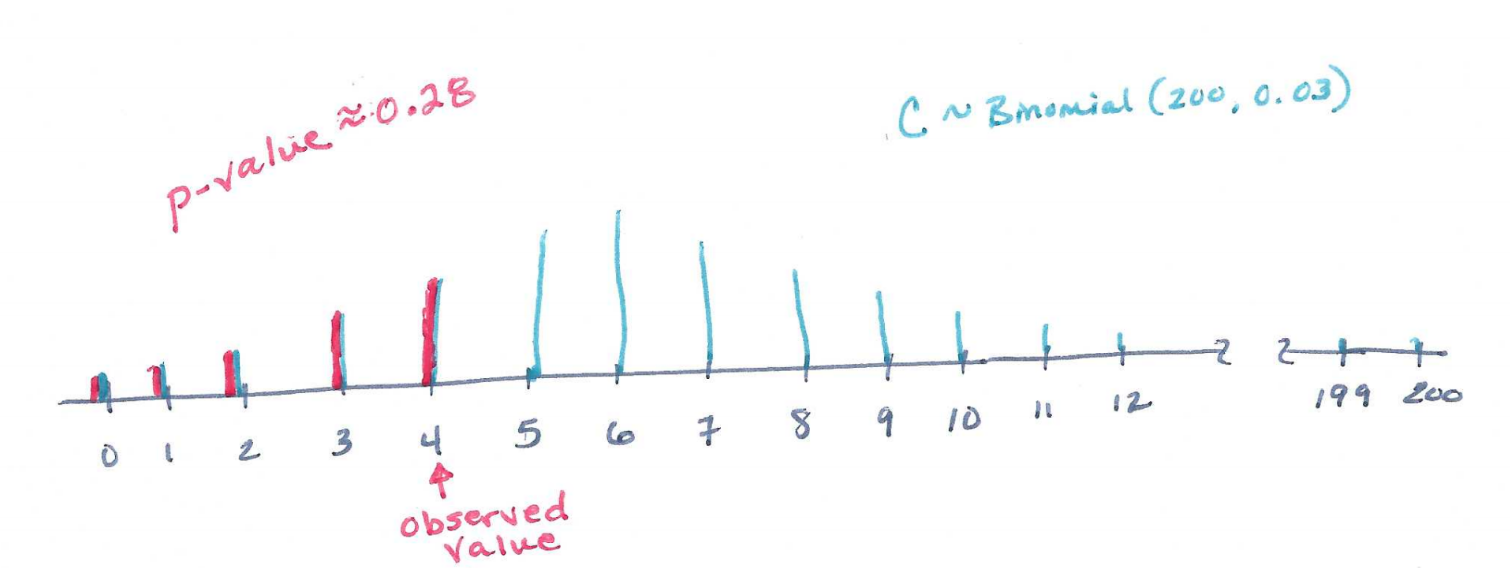 p-value ≈ 0.28
C ~ Binomial (200, 0.03)
0 1 2 3 4 5 6 7 8 9 10 11 12 199 200
↑
observed
value